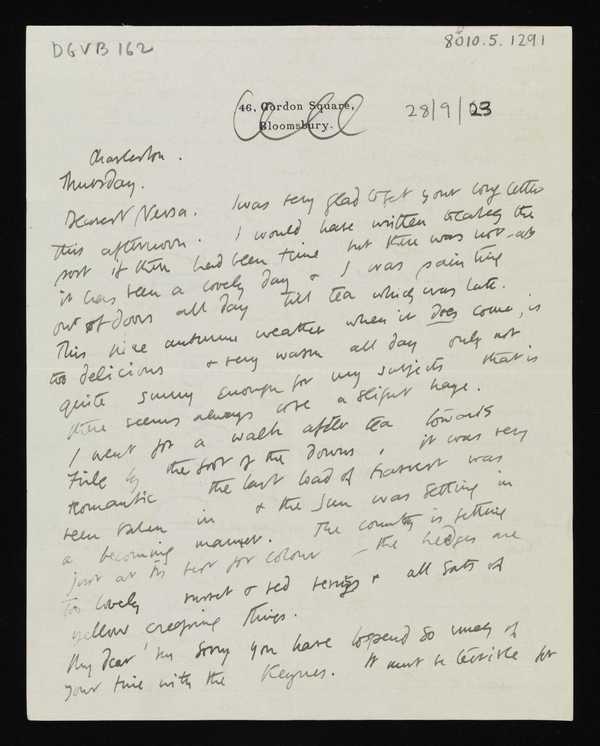 DGVB 162
8010.5.1291
46, Gordon Square,
Bloomsbury.
28/9/23
Charleston.
Thursday.
Dearest Nessa. I was very glad to get your long letter
this afternoon. I would have written to catch the
post if there had been time but there was not – as
it has been a lovely day & I was painting
out of doors all day till tea which was late.
This fine autumn weather when it does come, is
too delicious & very warm all day only not
quite sunny enough for my subjects that is
there seems always to be a slight haze.
I went for a walk after tea towards
Firle by the foot of the Downs, it was very
Romantic the last load of harvest was
been taken in & the sun was setting in
a becoming manner. The country is getting
just at its best for colour – the hedges are
too lovely russet & red berries & all sorts of
yellow creeping things.
My dear I'm sorry you have to spend so much of
your time with the Keynes. It must be terrible for